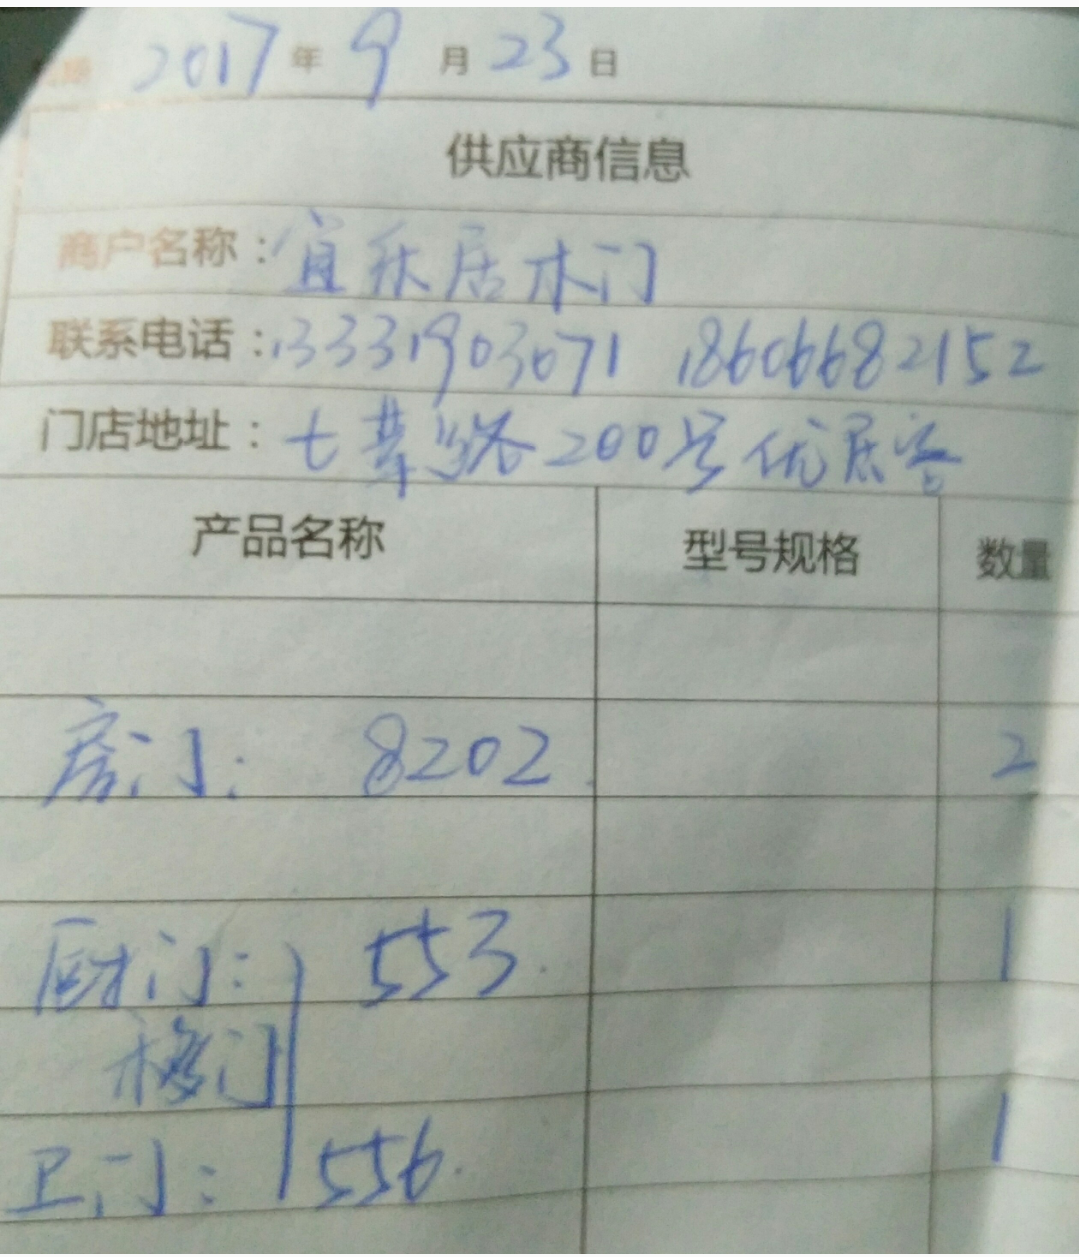 日期 2017年 9月 23日
供应商信息
商户名称：宜乐居木门
联系电话：13331903071 18606682152
门店地址：七莘路200号优居客
产品名称 型号规格 数量
房门： 8202 2
厨门： 553 1
移门
卫门： 556 1